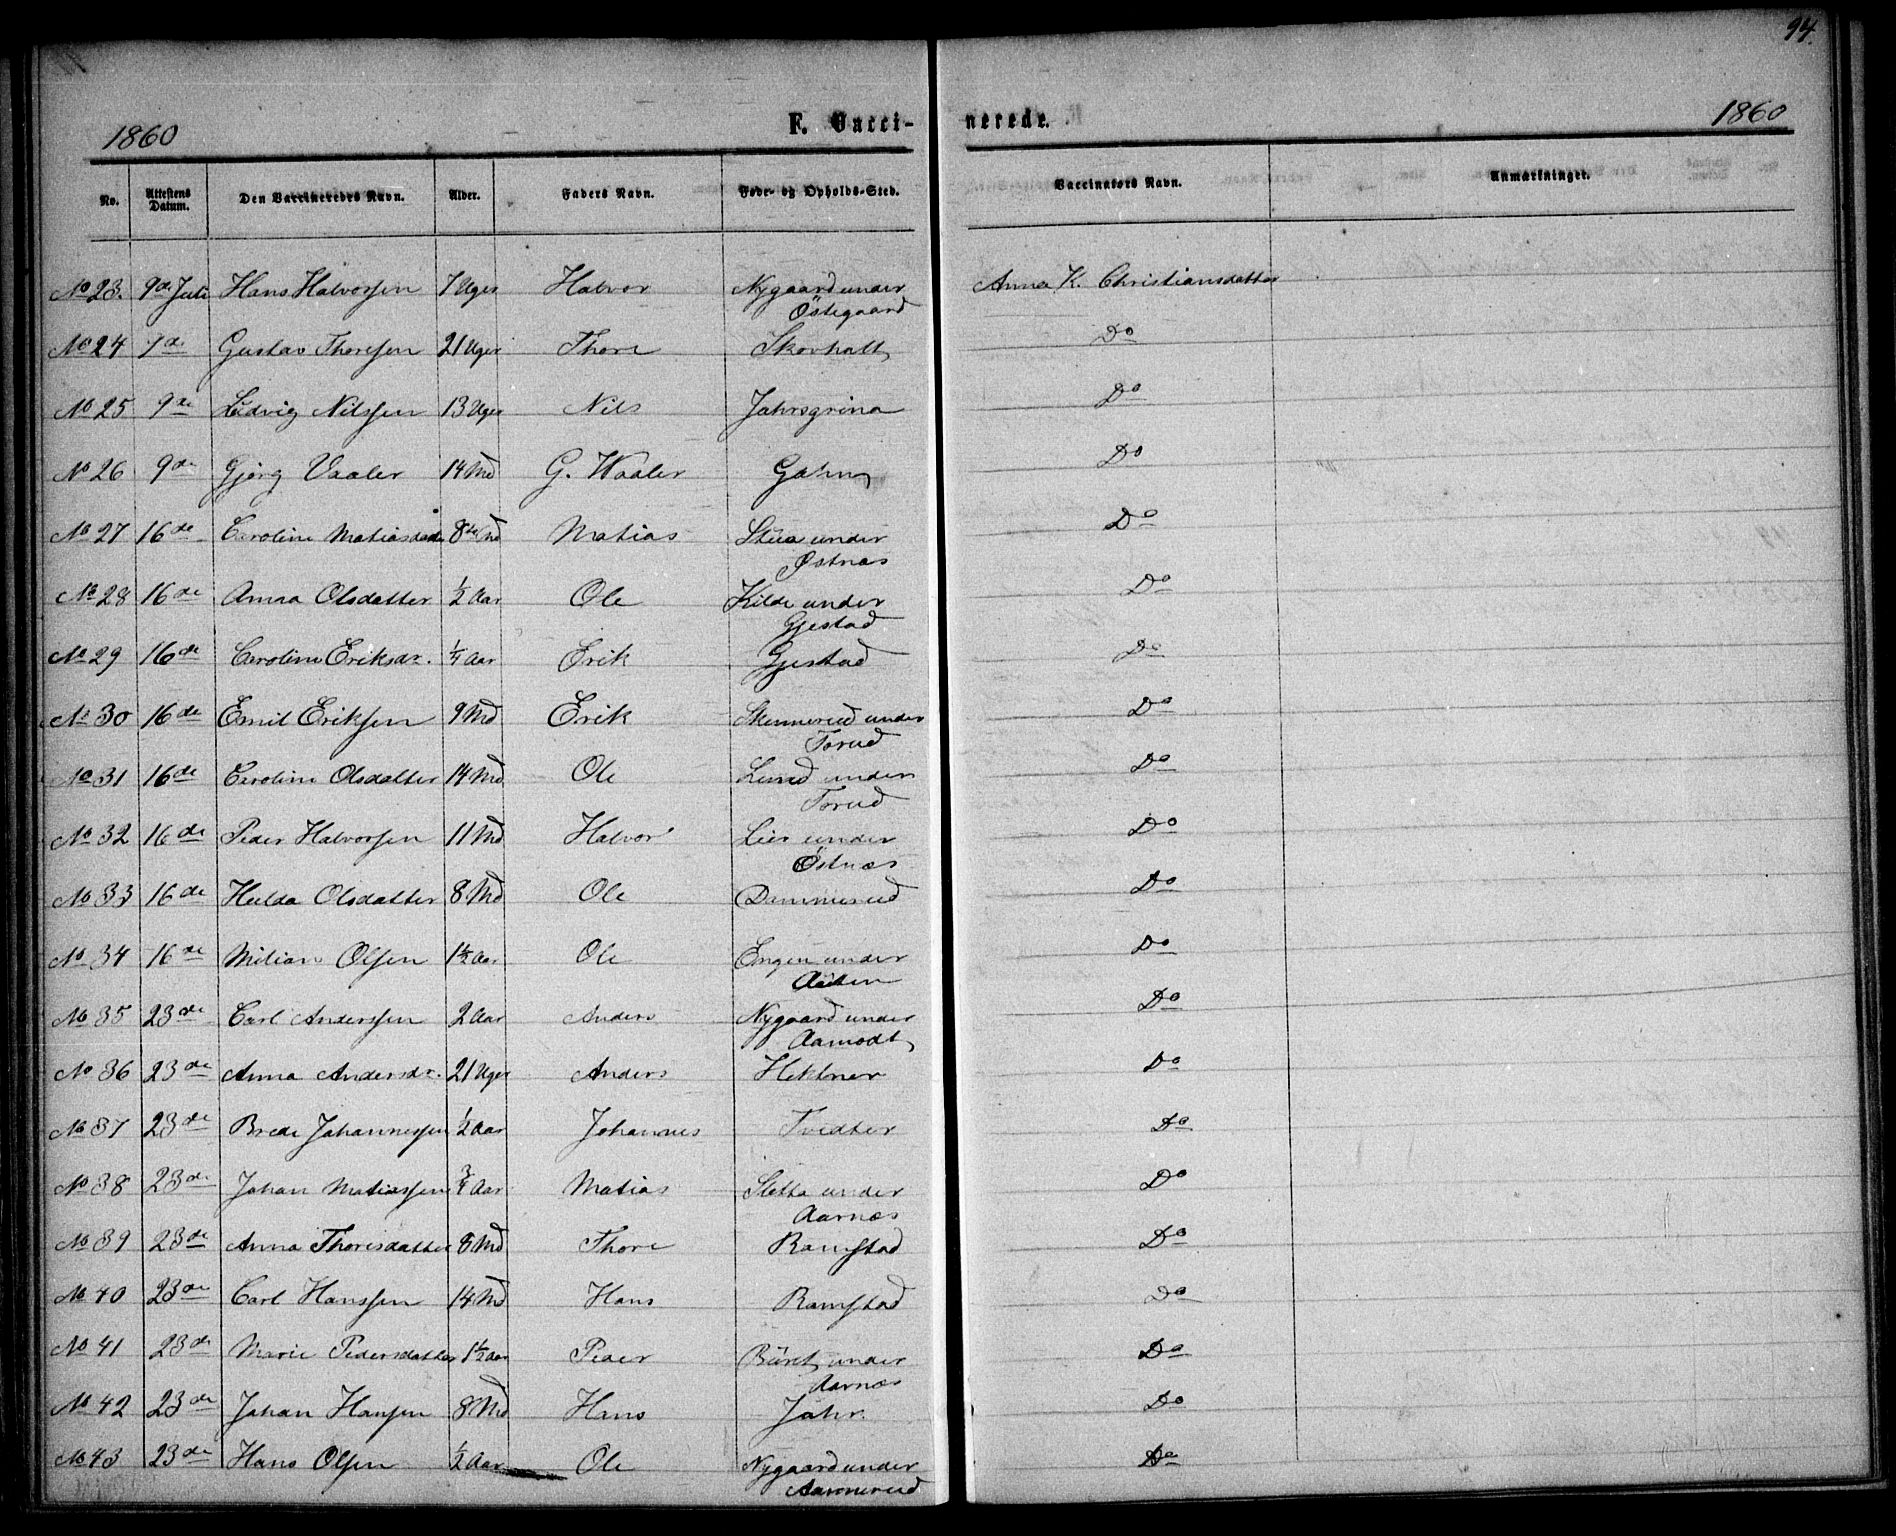 94.
1860 F. Vacci- nerede. 1860
No. Attestens Datum. Den Vaccineredes Navn. Alder. Faders Navn. Føde- og Opholds-Sted. Vaccinators Navn. Anmærkninger.
No 23. 9de Juli Hans Halvorsen 7 Uger Halvor Nygaard under Anna K. Christiansdatter
Östegaard
No 24 7de Gustav Thoresen 21 Uger Thore Skovhatt Do
No 25 9de Ludvig Nilssen 13 Uger Nils Jahrsgrina Do
No 26 9de Gjörg Vaaler 14 Md G. Waaler Do
No 27 16de Caroline Matiasdatter 8 Md Matias Stua under Do
Østnæs
No 28 16de Anna Olsdatter ½ Aar Ole Kilde under Do
Gjestad
No 29 16de Caroline Eriksdr. ¼ Aar Erik Gjestad Do
No 30 16de Emil Eriksen 9 Md Erik Skennerud under Do
Torud
No 31 16de Caroline Olsdatter 14 Md Ole Lund under Do
Torud
No 32 16de Peder Halvorsen 11 Md Halvor Lier under Do
Östnæs
No 33 16de Hulda Olsdatter 8 Md Ole Dammerud Do
No 34 16de Milian Olsen 1½ Aar Ole Engen under Do
No 35 23de Carl Anderssen 2 Aar Anders Nygaard under Do
Aamodt
No 36 23de Anna Andersdr. 21 Uger Anders Hektner Do
No 37 23de Brede Johannessen ½ Aar Johannes Tvedter Do
No 38 23de Johan Matiassen ¾ Aar Matias Sletta under Do
Aarnæs
No 39 23de Anna Thoresdatter 8 Md Thore Ramstad Do
No 40 23de Carl Hanssen 14 Md Hans Ramstad Do
No 41 23de Marie Pedersdatter 1½ Aar Peder Büret under Do
Aarnæs
No 42 23de Johan Hansen 8 Md Hans Jahr. Do
No 43 23de Hans Olsen ½ Aar Ole Nygaard under Do
Aamerud